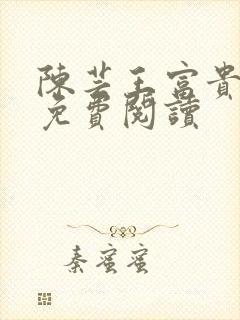 陳芸王富貴
免費閱讀
秦蜜蜜